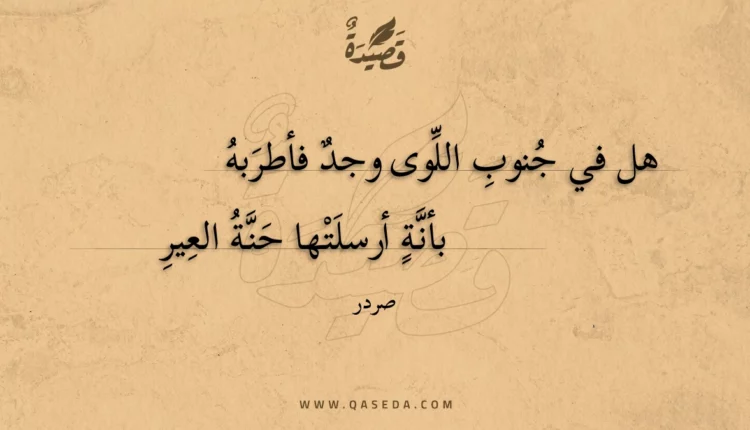 قَصِيْدَةٌ
هل في جُنوبِ اللِّوى وجدٌ فأطرَبهُ
بأنَّةٍ أرسلَتْها حَنَّةُ العِيرِ
صردر
WWW.QASEDA.COM